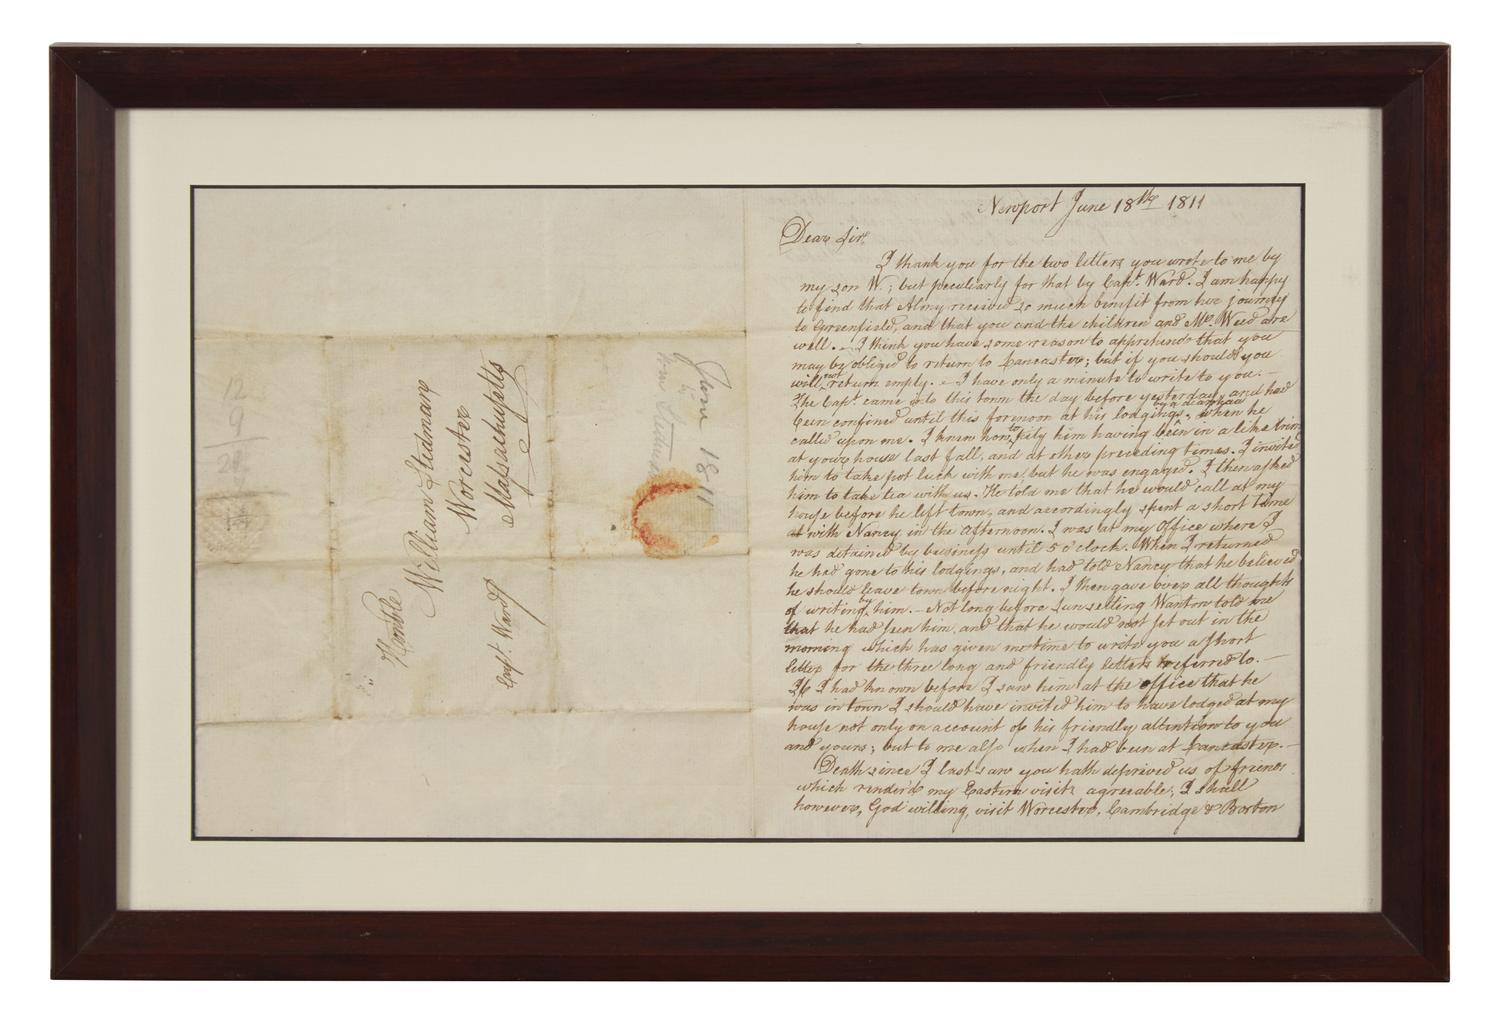 Newport June 18th 1811
Dear Sir
I thank you for the two letters you wrote to me by
my son W; but peculiarly for that by Capt. Ward. I am happy
to find that Almy received so much benefit from her journey
to Greenfield, and that you and the children and Mr. Weed are
well. – I think you have some reason to apprehend that you
may be obliged to return to Lancaster; but if you should you
will not return empty. – I have only a minute to write to you. –
The Capt. came to this town the day before yesterday, and had
been confined until this forenoon at his lodgings, when he
called upon me. I knew how to pity him having been in a like trim
at your house last fall, and at other preceding times. I invited
him to take pot luck with me; but he was engaged. I then asked
him to take tea with us. He told me that he would call at my
house before he left town, and accordingly spent a short time
with Nancy in the afternoon. I was at my office where I
was detained by business until 5 o'clock. When I returned
he had gone to his lodgings, and had told Nancy that he believed
he should leave town before night. I then gave over all thoughts
of writing by him. – Not long before sun setting Wanton told me
that he had seen him, and that he would not set out in the
morning which has given me time to write you a short
letter for the three long and friendly letters referred to. –
If I had known before I saw him at the office that he
was in town I should have invited him to have lodged at my
house not only on account of his friendly attention to you
and yours; but to me also when I had been at Lancaster. –
Death since I last saw you hath deprived us of friends
which render'd my Eastern visits agreeable; I shall
however, God willing, visit Worcester, Cambridge & Boston
Honble
William Stedman
Worcester
Massachusetts
Capt. Ward
June 1811
12
9